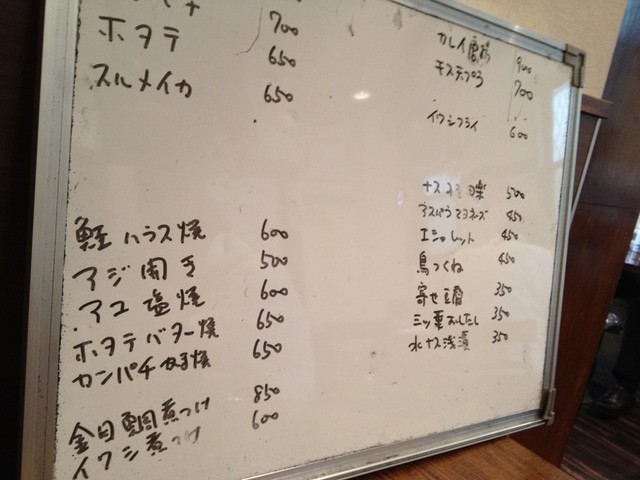 700
ホタテ 650
スルメイカ 650
鮭ハラス焼 600
アジ開き 500
アユ塩焼 600
ホタテバター焼 650
カンパチかま焼 650
金目鯛煮つけ 850
イワシ煮つけ 600
カレイ唐揚 900
キス天ぷら 700
イワシフライ 600
ナス 500
アスパラマヨネーズ 450
エシャレット 450
鳥つくね 450
寄せ豆腐 350
三ッ葉おしたし 350
水ナス浅漬 350